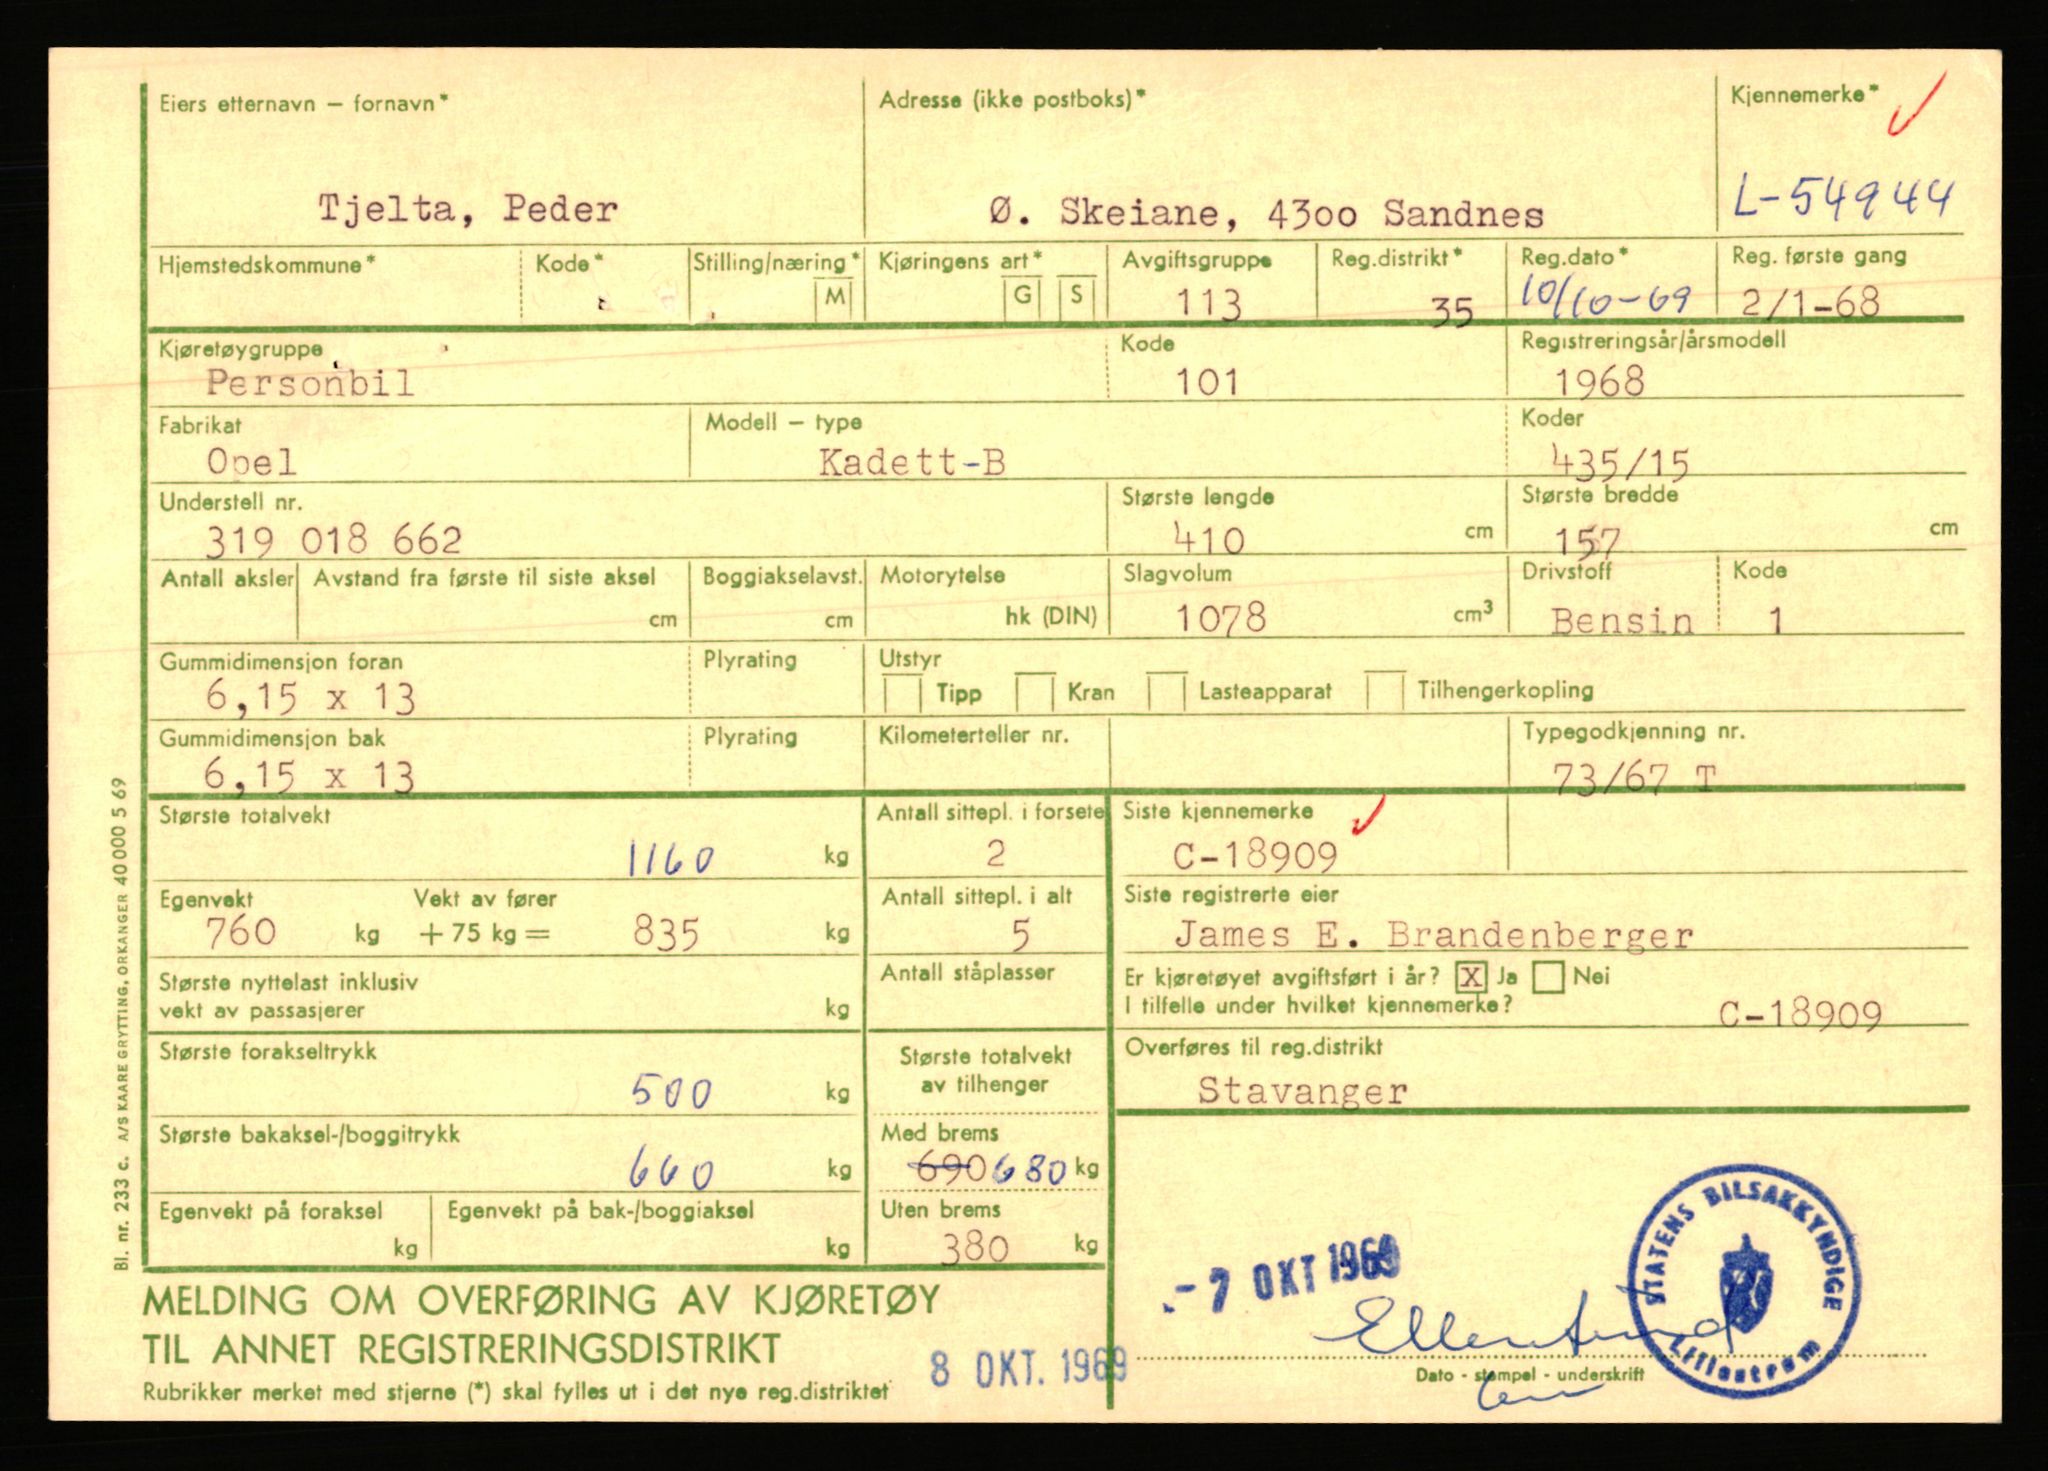 Eiers etternavn – fornavn*
Adresse (ikke postboks)*
Kjennemerke*
Tjelta, Peder
Ø. Skeiane, 4300 Sandnes
L-54944
Hjemstedskommune*
Kode*
Stilling/næring*
M
Kjøringens art*
G
S
Avgiftsgruppe
113
Reg.distrikt*
35
Reg.dato*
10/10-69
Reg. første gang
2/1-68
Kjøretøygruppe
Personbil
Kode
101
Registreringsår/årsmodell
1968
Fabrikat
Opel
Modell – type
Kadett-B
Koder
435/15
Understell nr.
319 018 662
Største lengde
410 cm
Største bredde
157 cm
Antall aksler
Avstand fra første til siste aksel
cm
Boggiakselavst.
cm
Motorytelse
hk (DIN)
Slagvolum
1078 cm3
Drivstoff
Bensin
Kode
1
Gummidimensjon foran
6,15 x 13
Plyrating
Utstyr
Tipp
Kran
Lasteapparat
Tilhengerkopling
Gummidimensjon bak
6,15 x 13
Plyrating
Kilometerteller nr.
Typegodkjenning nr.
73/67 T
Største totalvekt
1160 kg
Antall sittepl. i forsete
2
Siste kjennemerke
C-18909
Egenvekt
760 kg
Vekt av fører
+ 75 kg = 835 kg
Antall sittepl. i alt
5
Siste registrerte eier
James E. Brandenberger
Største nyttelast inklusiv
vekt av passasjerer
kg
Antall ståplasser
Er kjøretøyet avgiftsført i år? X Ja Nei
I tilfelle under hvilket kjennemerke?
C-18909
Største forakseltrykk
500 kg
Største totalvekt
av tilhenger
Overføres til reg.distrikt
Stavanger
Største bakaksel-/boggitrykk
660 kg
Med brems
690 680 kg
Egenvekt på foraksel
kg
Egenvekt på bak-/boggiaksel
kg
Uten brems
380 kg
MELDING OM OVERFØRING AV KJØRETØY
TIL ANNET REGISTRERINGSDISTRIKT
Rubrikker merket med stjerne (*) skal fylles ut i det nye reg.distriktet
8 OKT. 1969
-7 OKT 1969
STATENS BILSAKKYNDIGE
Lillestrøm
Dato - stempel - underskrift
Bl. nr. 233 c. A/S KAARE GRYTTING, ORKANGER 40 000 5 69